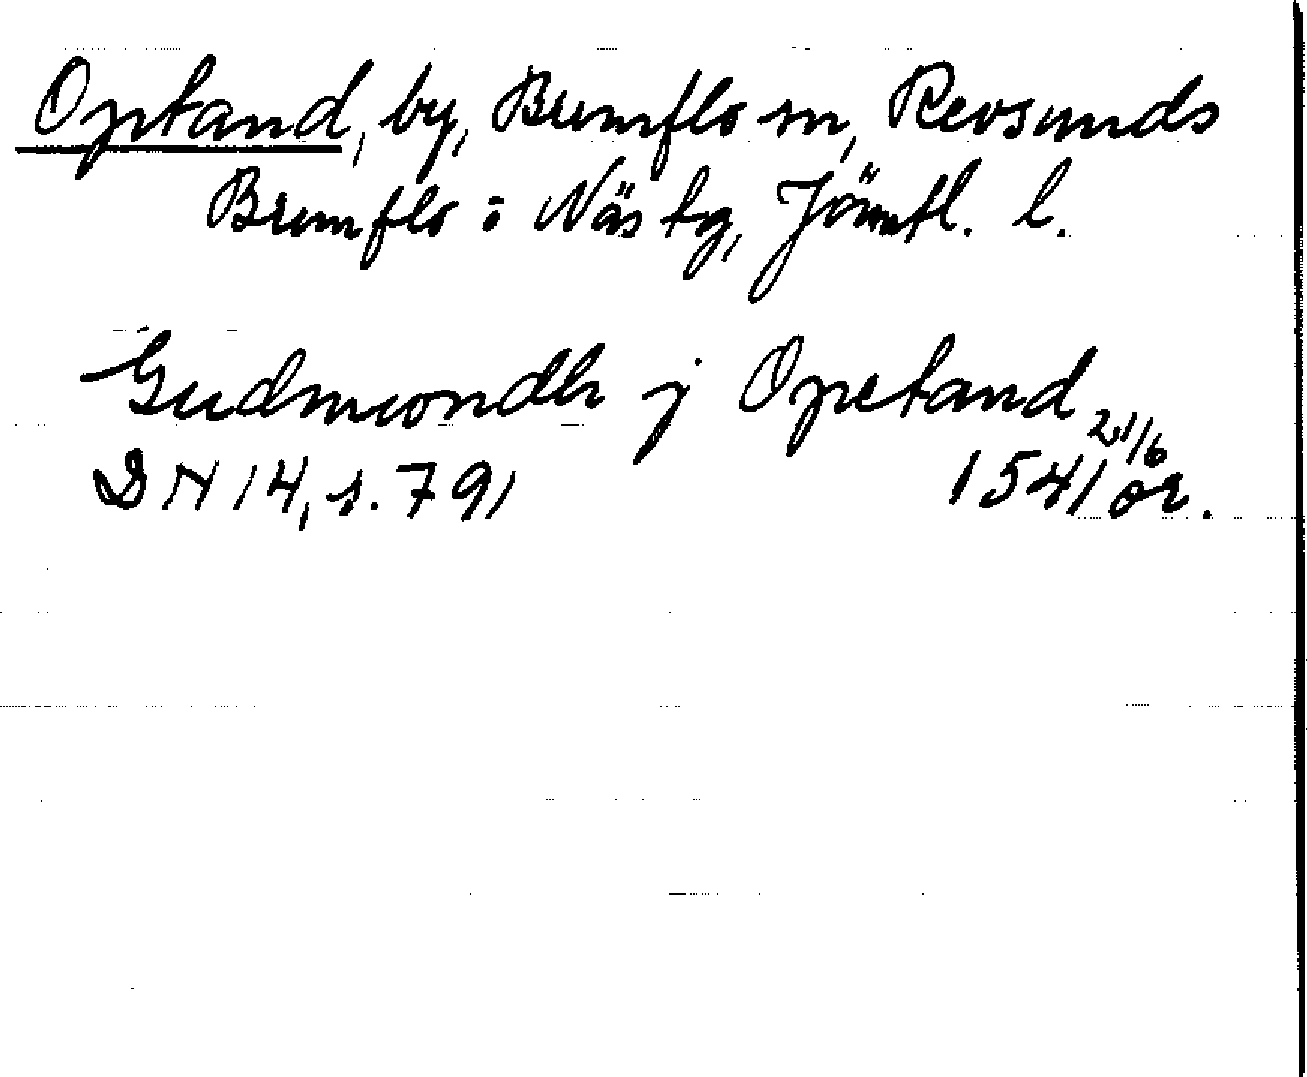 Optand, by, Brunflo sn, Revsunds
Brunflo o Näs tg, Jämtl. l.
Gudmwondh j Opetand
21/6
DN 14, s. 791 1541 or.